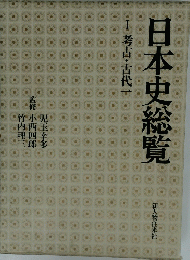 日本史総覧
I 考古・古代一
監修
児玉幸多
小西四郎
竹内理三
新人物往来社